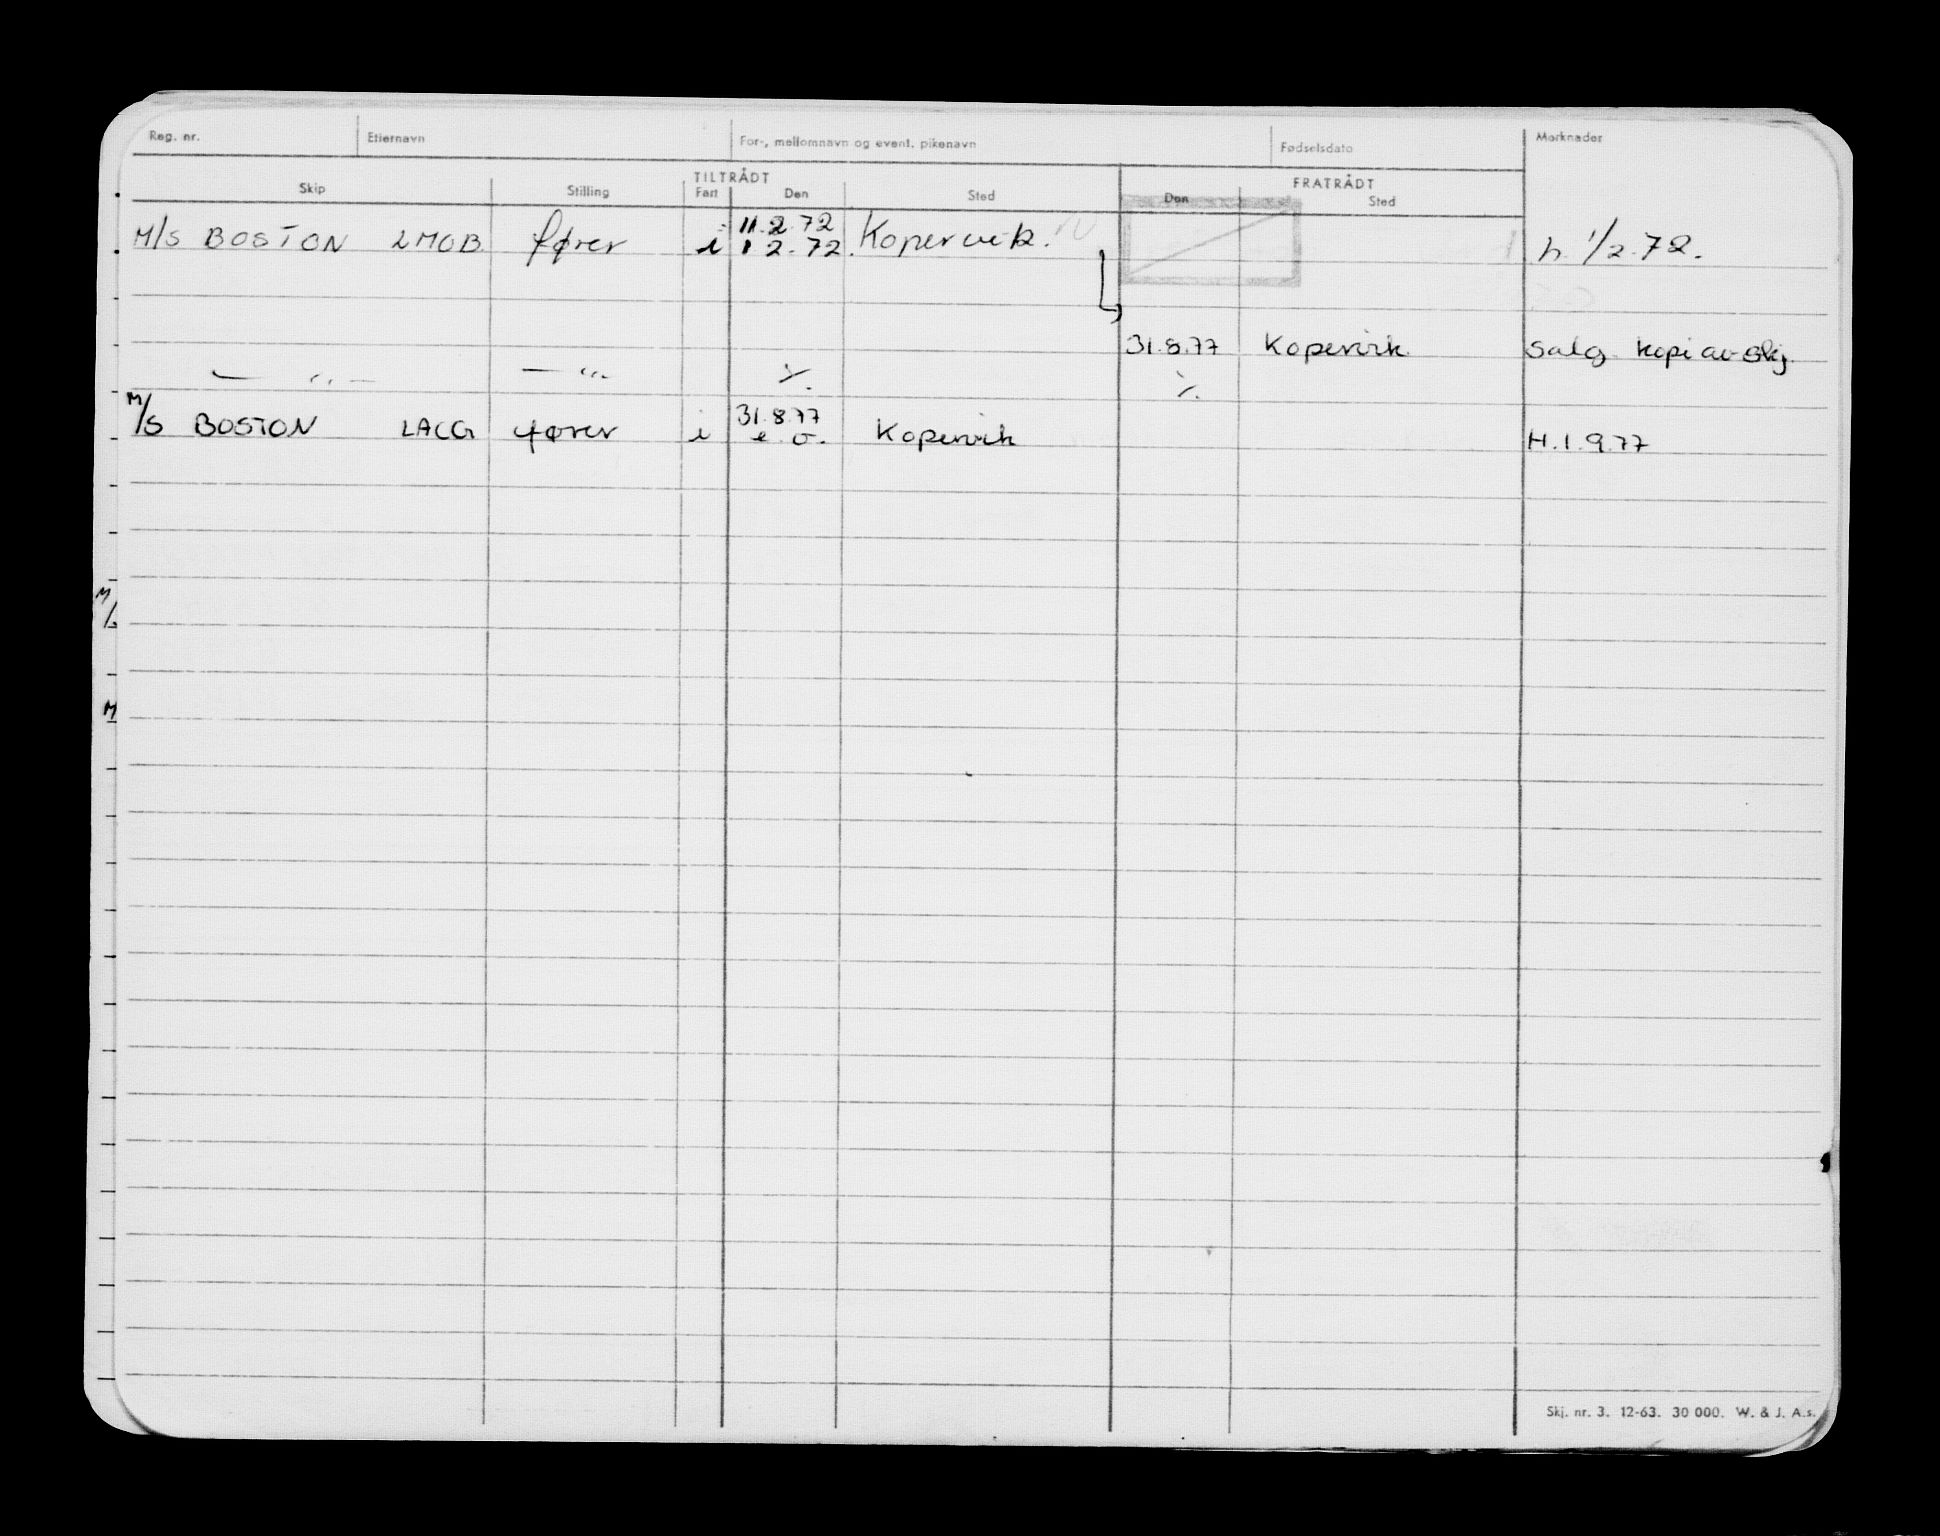 Reg. nr. Etternavn For-, mellomnavn og event. pikenavn Fødselsdato Merknader
TILTRÅDT FRATRÅDT
Skip Stilling Fart Den Sted Den Sted
11.2.72
M/S BOSTON LMOB. fører i 1 2.72. Kopervik. h. 1/2.72.
31.8.77 Kopervik. Salg. Kopi av skj.
— ,, — — ,,, ./. ./.
31.8.77
M/S BOSTON LACG fører i e.o. Kopervik H.1.9.77
M/s
M
Skj. nr. 3. 12-63. 30 000. W. & J. A.s.